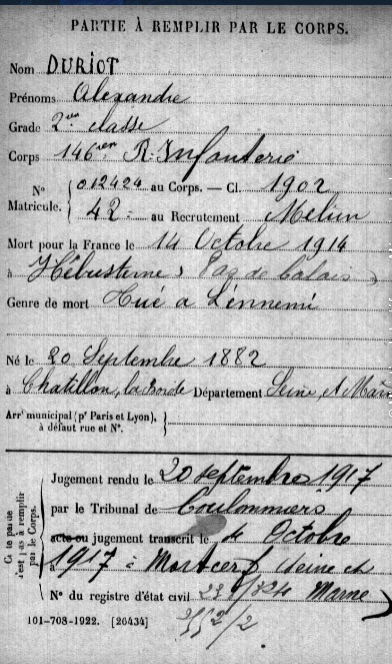 PARTIE À REMPLIR PAR LE CORPS.
Nom DURIOT
Prénoms Alexandre
Grade 2ème classe
Corps 146ème R. Infanterie
N° Matricule. { 012424 au Corps. — Cl. 1902
42 = au Recrutement Melun
Mort pour la France le 14 Octobre 1914
à Hébusterne, Pas de Calais
Genre de mort Tué a L'énnemi
Né le 20 Septembre 1882
à Chatillon, la Borde Département Seine, et Marne
Arrt municipal (pr Paris et Lyon), à défaut rue et N°. }
Jugement rendu le 20 septembres 1917
par le Tribunal de Coulommiers
acte ou jugement transcrit le 4 Octobre
à 1917 à Mortcerf Seine et
N° du registre d'état civil Marne
101-708-1922. [26434]
Cette partie n'est pas à remplir par le Corps.